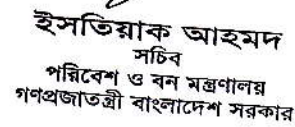 ইসতিয়াক আহমদ
সচিব
পরিবেশ ও বন মন্ত্রণালয়
গণপ্রজাতন্ত্রী বাংলাদেশ সরকার